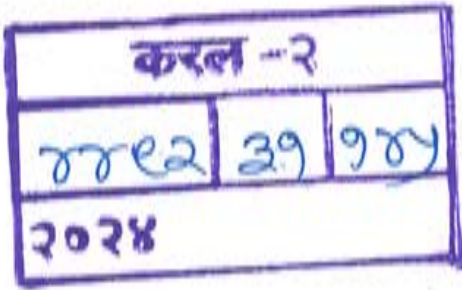 करल - २
४४९२ ३१ १४५
२०२४